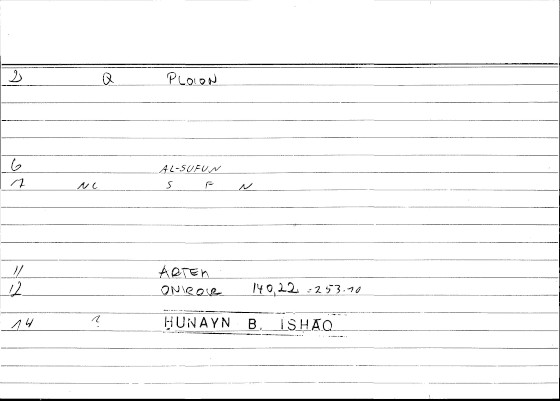 2 Q PLOION
6 AL-SUFUN
7 NC S F N
11 ARTEM
12 ONIROCR 140,22 = 253.10
14 ? HUNAYN B. ISHAQ